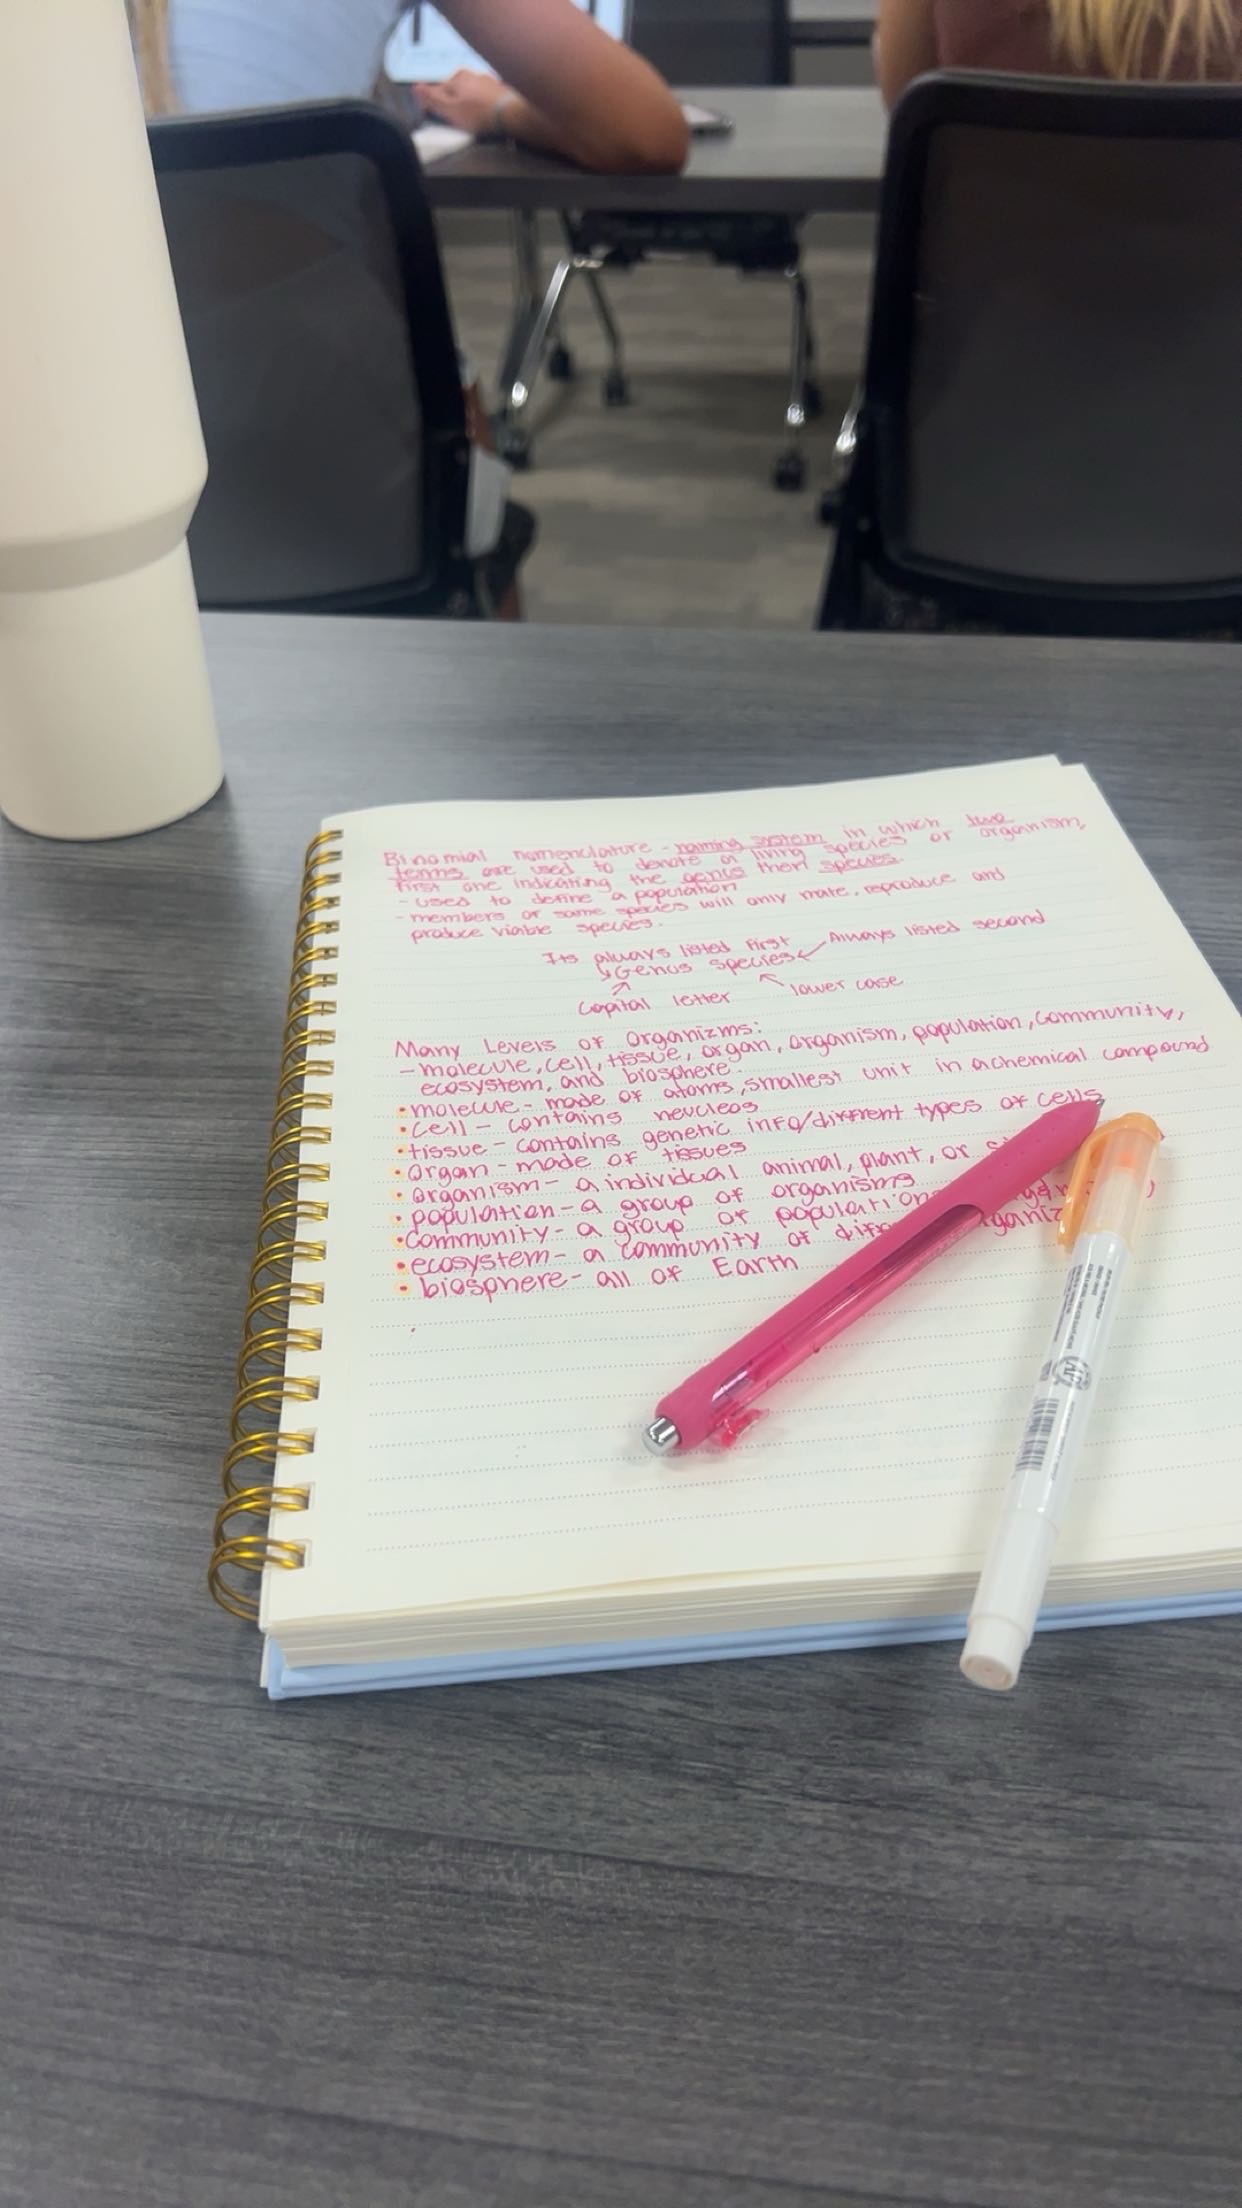 Binomial nomenclature - naming system in which two
terms are used to denote a living species or organism,
first one indicating the genus then species.
- used to define a population
- members of same species will only mate, reproduce and
produce viable species.
Its always listed first Always listed second
Genus species
Capital letter lower case
Many Levels of Organizms:
- molecule, cell, tissue, organ, organism, population, community,
ecosystem, and biosphere.
• molecule - made of atoms, smallest unit in a chemical compound
• cell - contains neucleos
• tissue - contains genetic info/diffrent types of cells
• organ - made of tissues
• organism - a individual animal, plant, or
• population - a group of organisms
• community - a group of populations
• ecosystem - a community of
• biosphere - all of Earth